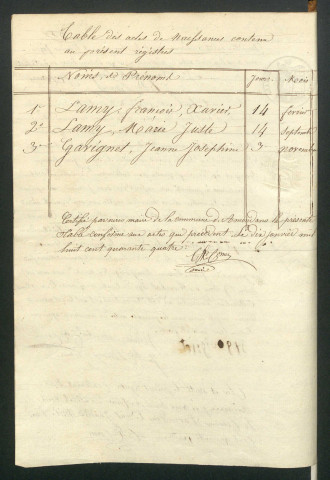 Table des actes de Naissances contenu
au présent registres
Noms et Prénoms Jours Mois
1º Lamy, François Xavier, 14 fevrier
2º Lamy, Marie Juste 14 septembre
3º Garignet, Jeanne Josephine 3 novembre
Certifié par nous maire de la commune d présente
Table conforme aux actes qui précèdent le dix janvier mil
huit cent quarante quatre